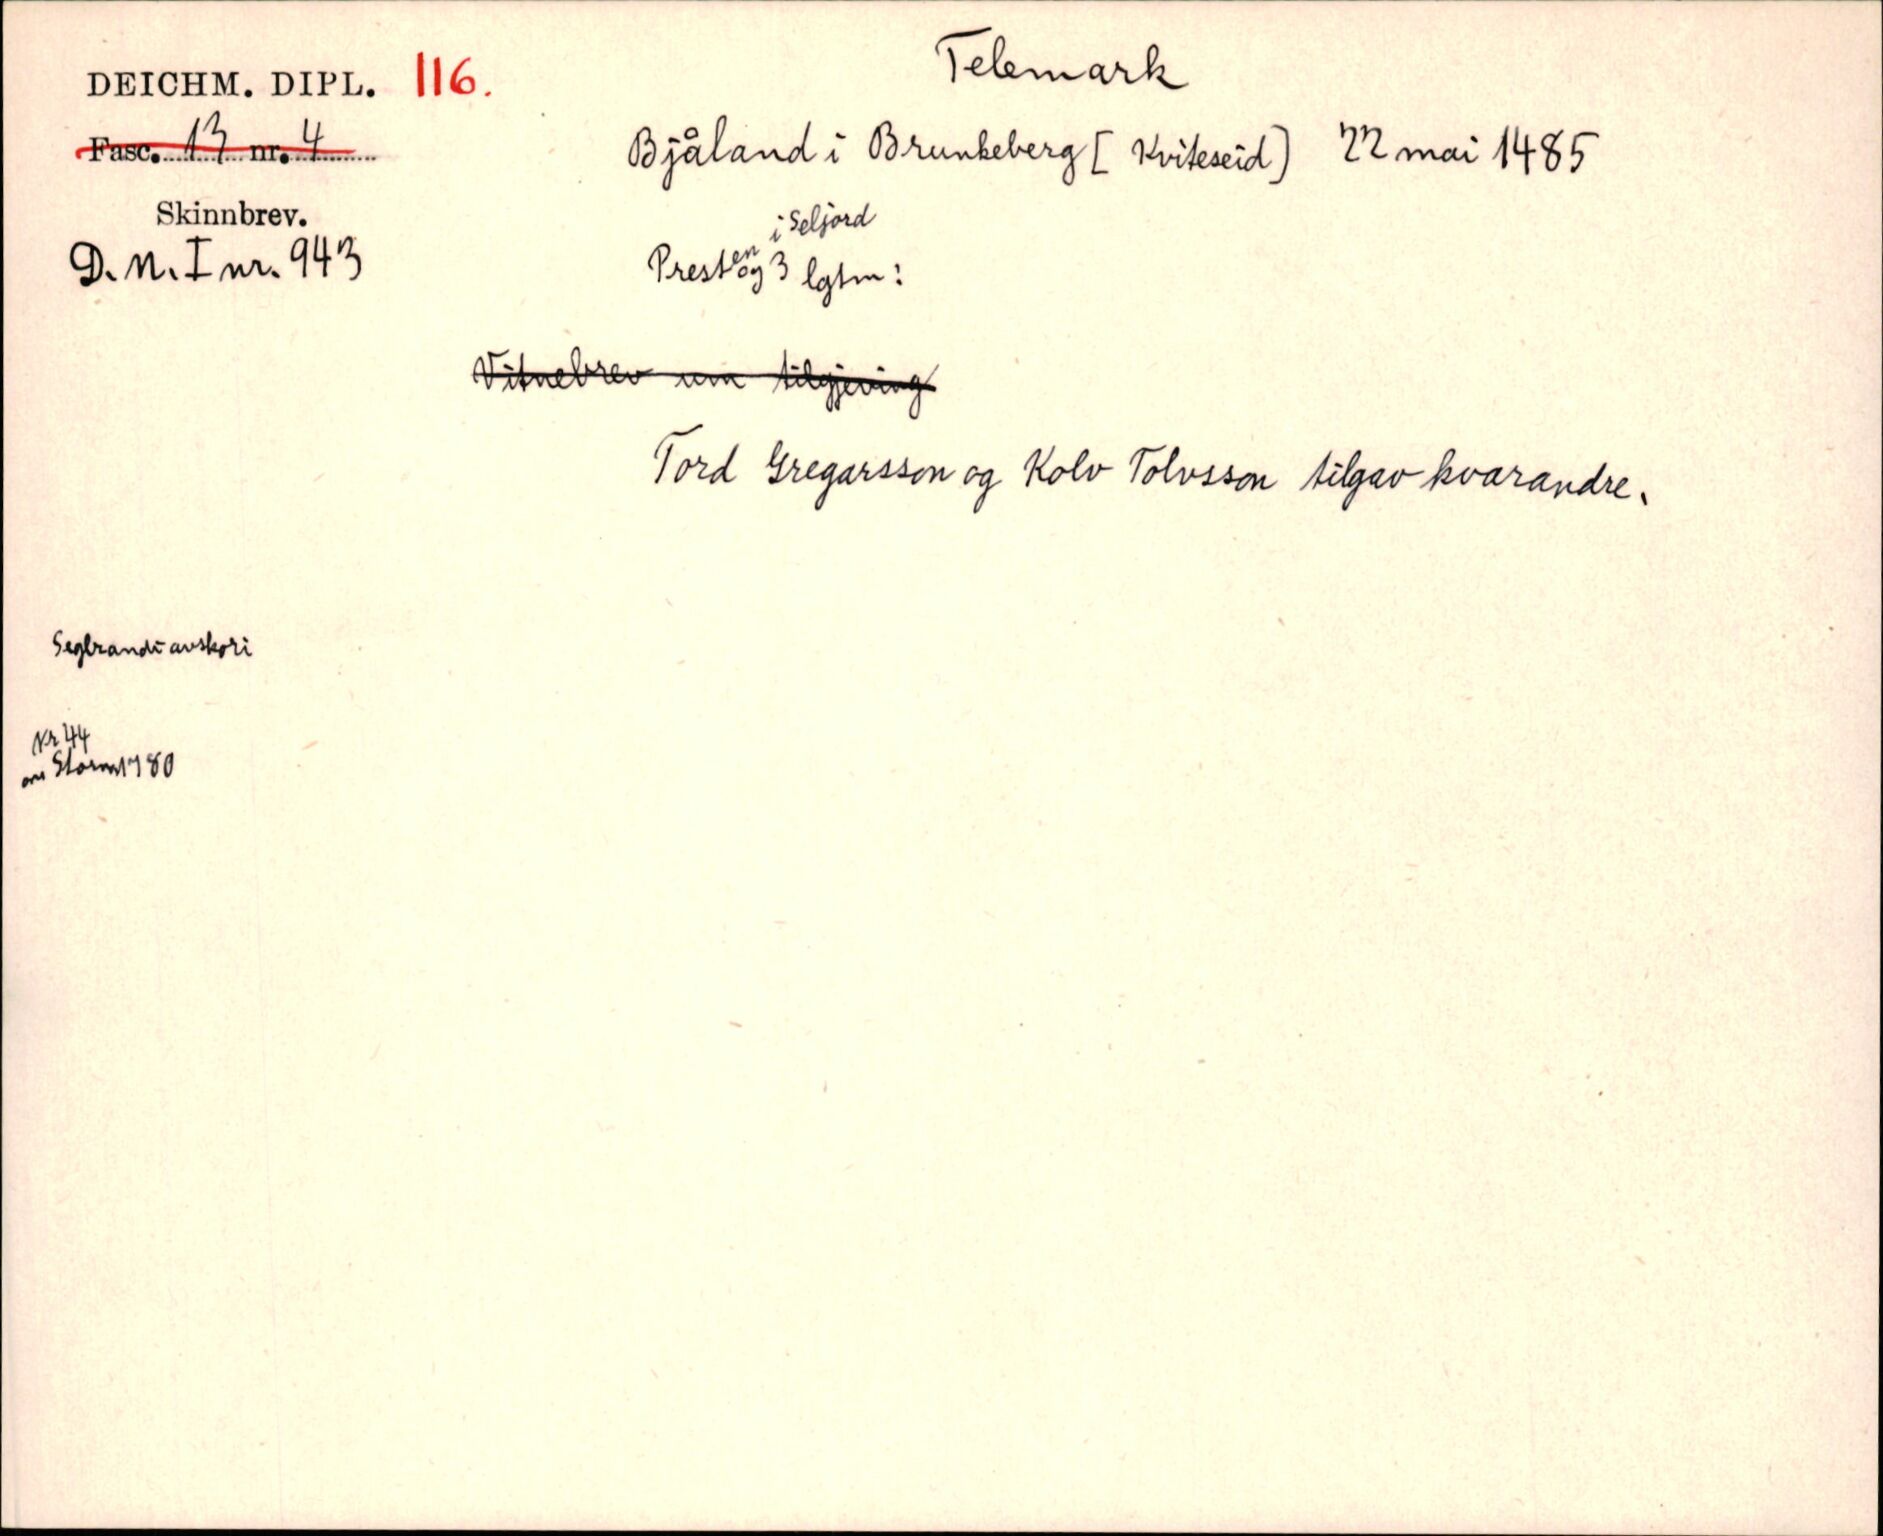 Telemark
DEICHM. DIPL. 116.
Fasc. 13 nr. 4
Bjåland i Brunkeberg [Kviteseid] 22 mai 1485
Skinnbrev.
D.N. I nr. 943
i Seljord
Presten og 3 lgtm:
Vitnebrev um tilgjeving
Tord Gregarsson og Kolv Tolvsson tilgav kvarandre.
Seglrandi avskori
Nr 44
Storm 1780